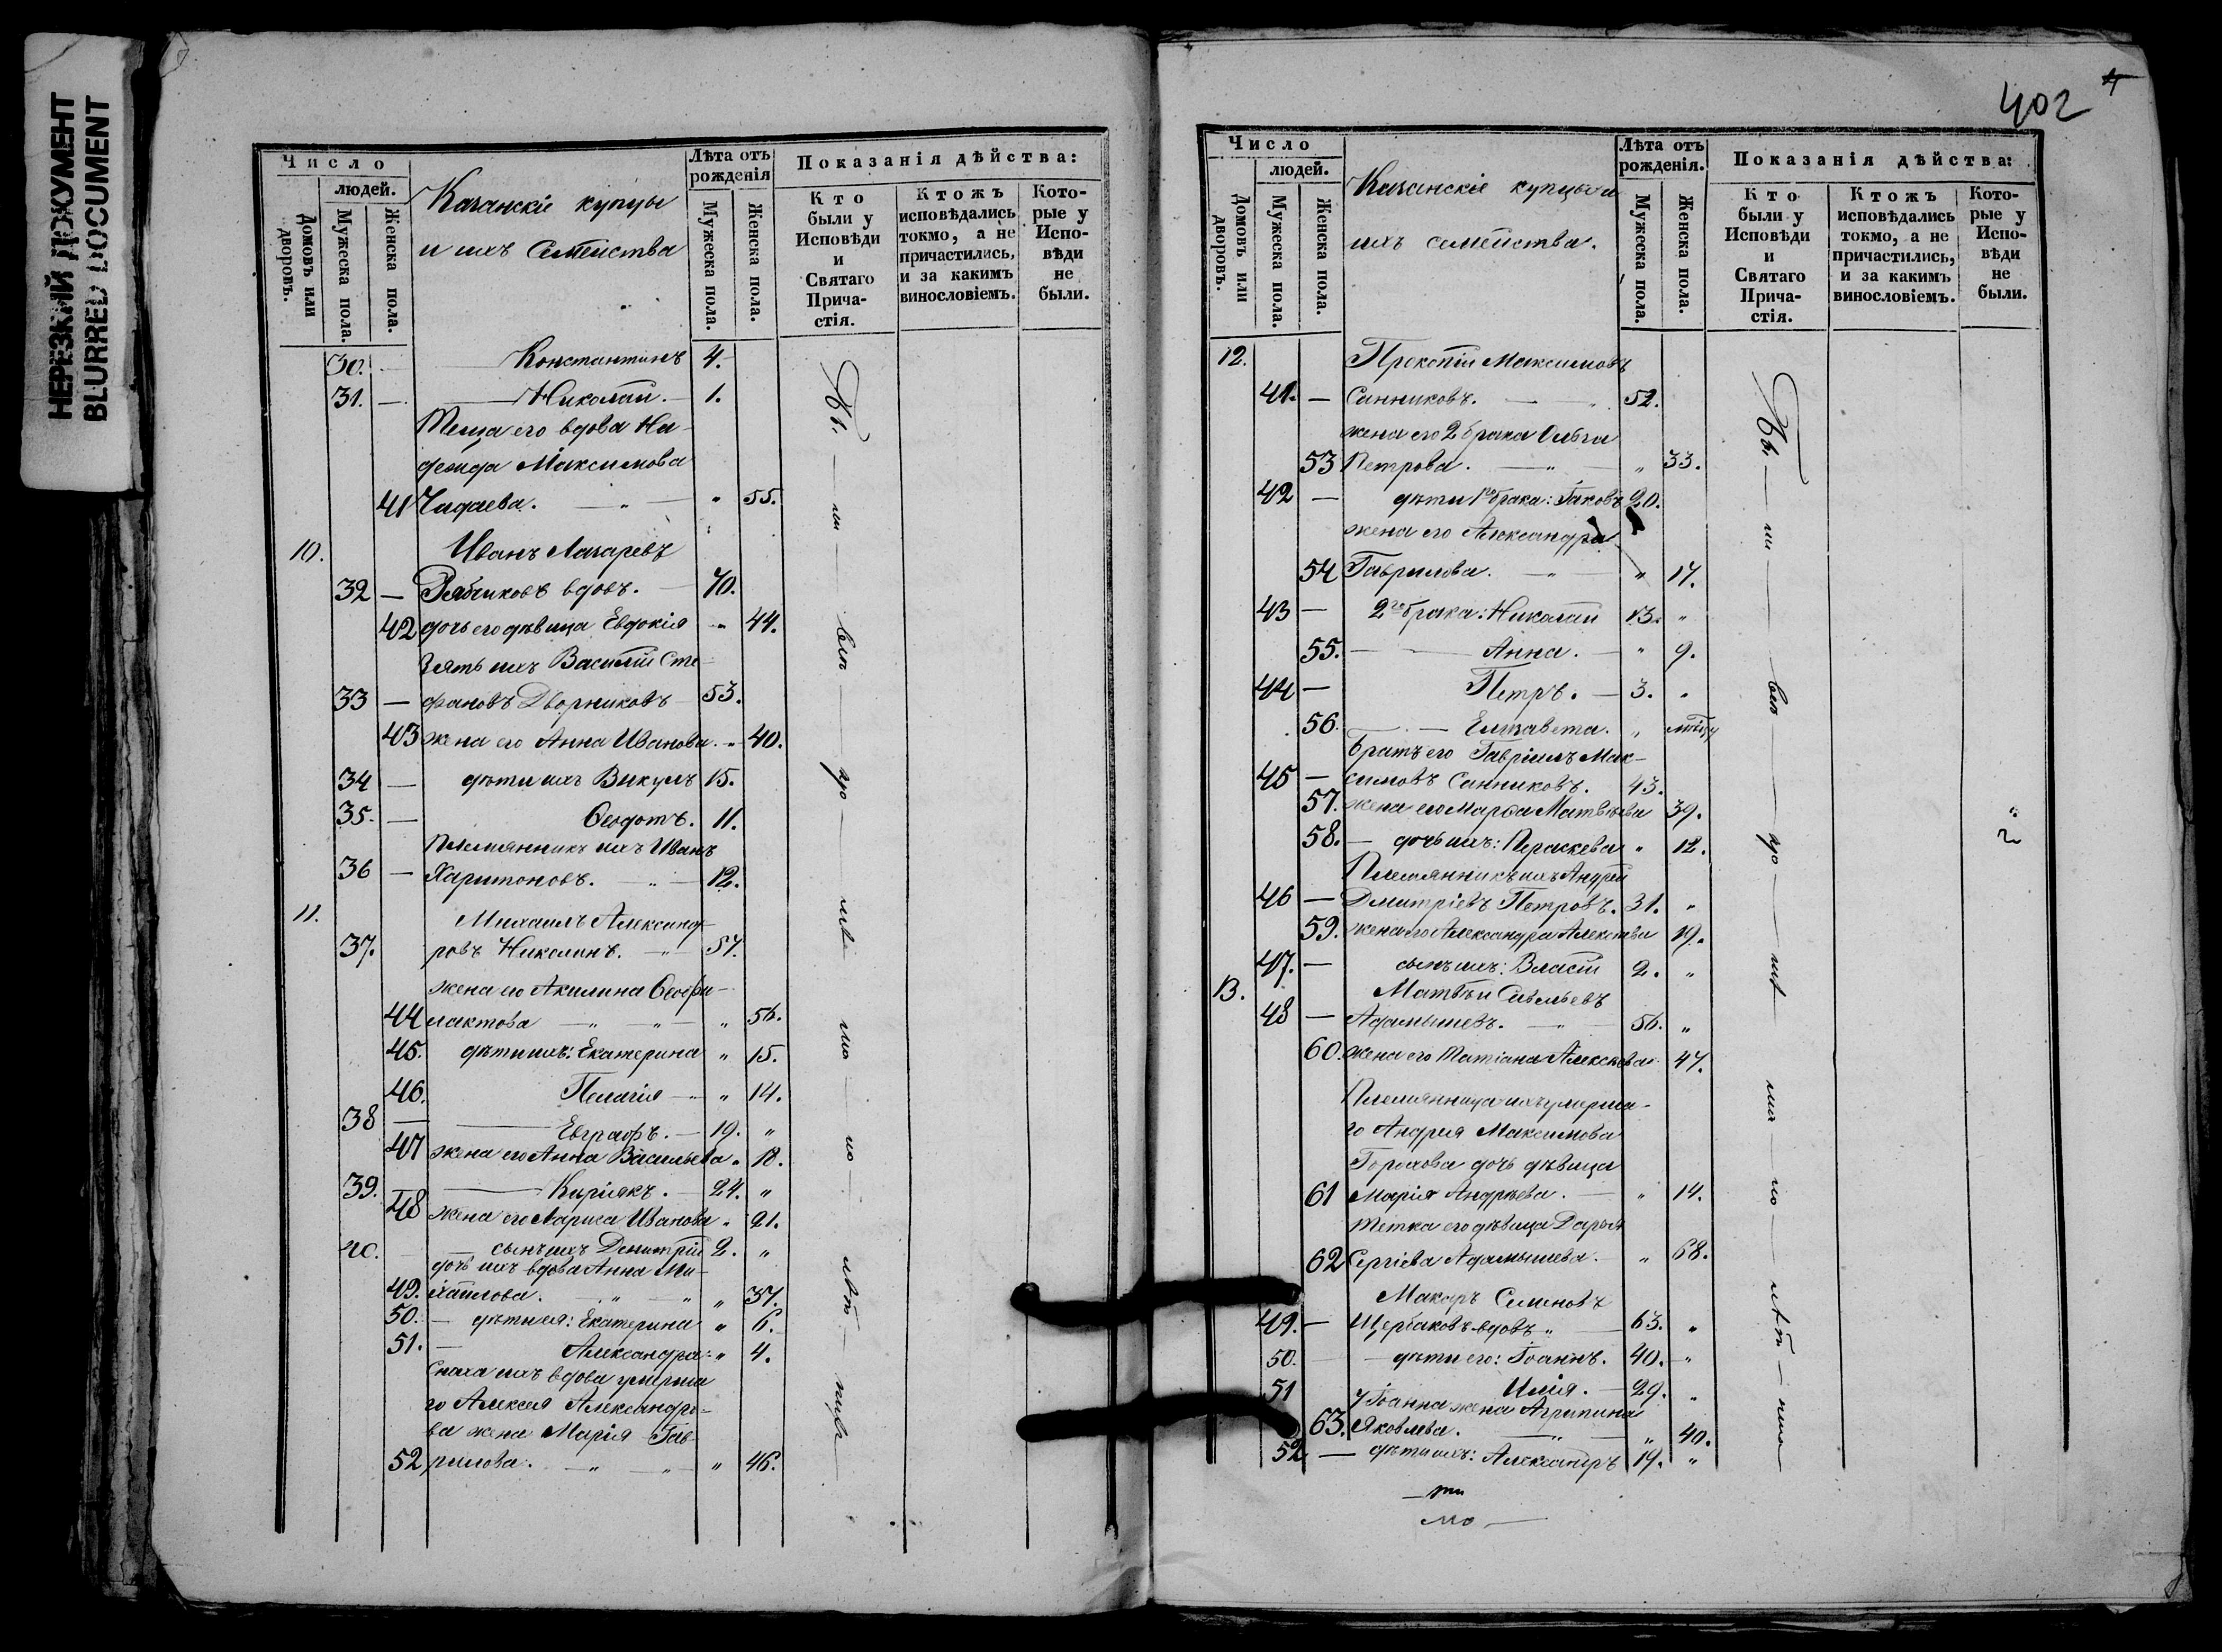 НЕРЕЗКИЙ ДОКУМЕНТ
BLURRED DOCUMENT
Число
людей.
Домовъ или дворовъ.
Мужеска пола.
Женска пола.
Казанскіе купцы
и ихъ Семейства
Лѣта отъ рожденія
Мужеска пола.
Женска пола.
Показанія дѣйства:
Кто были у Исповѣди и Святаго Прича-стія.
Ктожъ исповѣдались токмо, а не причастились, и за какимъ винословіемъ.
Кото-рые у Испо-вѣди не были.
30. — Константинъ 4.
31. — Николай. — 1.
Теща его вдова На-
дежда Максимова
41 Чидаева. — " — " 55.
10. Иванъ Лазаревъ
32 — Рябчиковъ вдовъ. — 70.
42 дочь его дѣвица Евдокія " 44.
Зять ихъ Василій Сте-
33 — фановъ Дворниковъ 53.
43 жена его Анна Иванова. " 40.
34 — дѣти ихъ Викулъ 15.
35. — Ѳеодотъ. 11.
Племянникъ ихъ Иванъ
36 — Харитоновъ. — " — 12.
11. Михаилъ Александ-
37. ровъ Николинъ. — " — 57.
жена его Акилина Ѳеофи-
44 лактова — " — " — " 56.
45. дѣти ихъ: Екатерина " 15.
46. Пелагія — " " 14.
38 — Евграфъ. — 19. "
47 жена его Анна Васильева " 18.
39. — Киріякъ. — 24. "
48 жена его Лариса Иванова " 21.
40. — сынъ ихъ Димитрій 2. "
дочь ихъ вдова Анна Ми-
49. хайлова. " " " 37.
50. — дѣти ея: Екатерина " 6.
51. — Александра: " 4.
Сноха ихъ вдова умерша
го Алексѣя Александро-
ва жена Марія Гав-
52 рилова. — " " — " 46.
402 4
Число
людей.
Домовъ или дворовъ.
Мужеска пола.
Женска пола.
Казанскіе купцы и
ихъ семейства.
Лѣта отъ рожденія.
Мужеска пола.
Женска пола.
Показанія дѣйства:
Кто были у Исповѣди и Святаго Прича-стія.
Ктожъ исповѣдались токмо, а не причастились, и за какимъ винословіемъ.
Кото-рые у Испо-вѣди не были.
12. Прокопій Максимовъ
41. — Санниковъ. — 52.
жена его 2 брака Ольга
53 Петрова. — " — " 33.
42 — дѣти 1го брака: Іаковъ 20.
жена его Александра
54 Гаврилова. — " — " 17.
43 — 2го брака: Николай 13. "
55. — Анна. — " 9.
44 — Петръ. — 3. "
56. — Елизавета. "
братъ его Гавріилъ Мак-
45 — симовъ Санниковъ. 43.
57. жена его Марѳа Матвѣева 39.
58. — дочь ихъ: Параскева " 12.
Племянникъ ихъ Андрей
46 — Димитріевъ Петровъ. 31. "
59. жена его Александра Алексѣева 19.
47. — сынъ ихъ: Власій 2. "
13. Матвѣй Савельевъ
48 — Адамышевъ. — " — 56. "
60. жена его Татіана Алексѣева 47.
Племянница ихъ умерша-
го Андрея Максимова
Горохова дочь дѣвица
61 Марія Андреева. — " 14.
тетка его дѣвица Дарья
62 Сергіева Адамышева. — " 68.
Макаръ Симеоновъ
49. — Щербаковъ вдовъ " — 63. "
50. — дѣти его: Іоаннъ. 40. "
51 Илія. — 29. "
у Іоанна жена Агрипина
63. Яковлева. — " — " 40.
52 — дѣти ихъ: Александръ 19. "